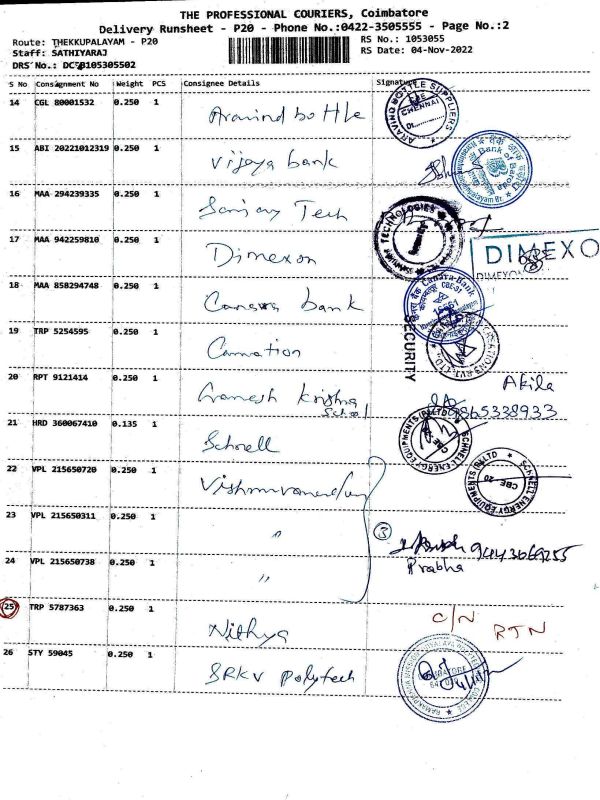 THE PROFESSIONAL COURIERS, Coimbatore
Delivery Runsheet - P20 - Phone No.:0422-3505555 - Page No.:2
Route: THEKKUPALAYAM - P20
RS No.: 1053055
Staff: SATHIYARAJ
RS Date: 04-Nov-2022
S No Consignment No Weight PCS Consignee Details Signature
14 CGL 80001532 0.250 1 Aravind bottle
ARAVIND BOTTLE SUPPLIERS
CHENNAI
15 ABI 20221012319 0.250 1 Vijaya bank
Bank of Baroda
16 MAA 294239335 0.250 1 Sanjay Tech
TECHNOLOGIES
17 MAA 942259810 0.250 1 Dimexon
DIMEXO
DIMEXO
18 MAA 858294748 0.250 1 Canara bank
Canara Bank
19 TRP 5254595 0.250 1 Carnation
SECURITY
20 RPT 9121414 0.250 1 Ganesh Krishna
School
Akila
9865338933
21 HRD 360067410 0.135 1 Schnell
SCHNELL ENERGY EQUIPMENTS (P) LTD
22 VPL 215650720 0.250 1
SCHNELL ENERGY EQUIPMENTS (P) LTD
CBE - 20
23 VPL 215650311 0.250 1 "
3
9443669255
Prabha
24 VPL 215650738 0.250 1 "
25 TRP 5787363 0.250 1 Nithya
C/N RTN
26 STY 59045 0.250 1 SRKV Polytech